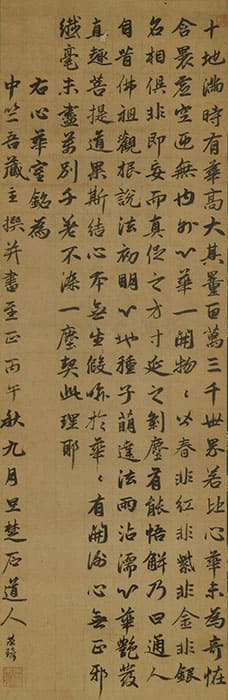 十地滿時有華高大其量百萬三千世界若比心華未為奇恠
含裹虛空匪無也外心華一開物〻皆春非紅非紫非金非銀
名相俱非即妄而真促之方寸延之剎塵有能悟解乃曰通人
自昔佛祖觀根說法初明心地種子萌達法雨沾濡心華艷發
真趣菩提道果斯結心本無生假喻於華〻有開謝心無正邪
纖毫未盡萬別千差不染一塵契此理耶
右心華室銘為
中竺吾藏主撰并書至正丙午秋九月旦楚石道人
梵琦